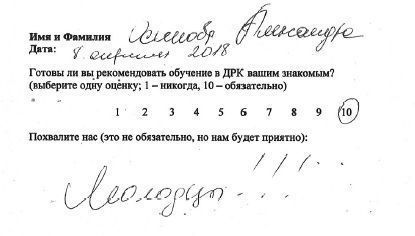 Имя и Фамилия Александра
Дата: 8 апреля 2018
Готовы ли вы рекомендовать обучение в ДРК вашим знакомым?
(выберите одну оценку; 1 – никогда, 10 – обязательно)
1 2 3 4 5 6 7 8 9 10
Похвалите нас (это не обязательно, но нам будет приятно):
Молодцы . . . !!! . . .